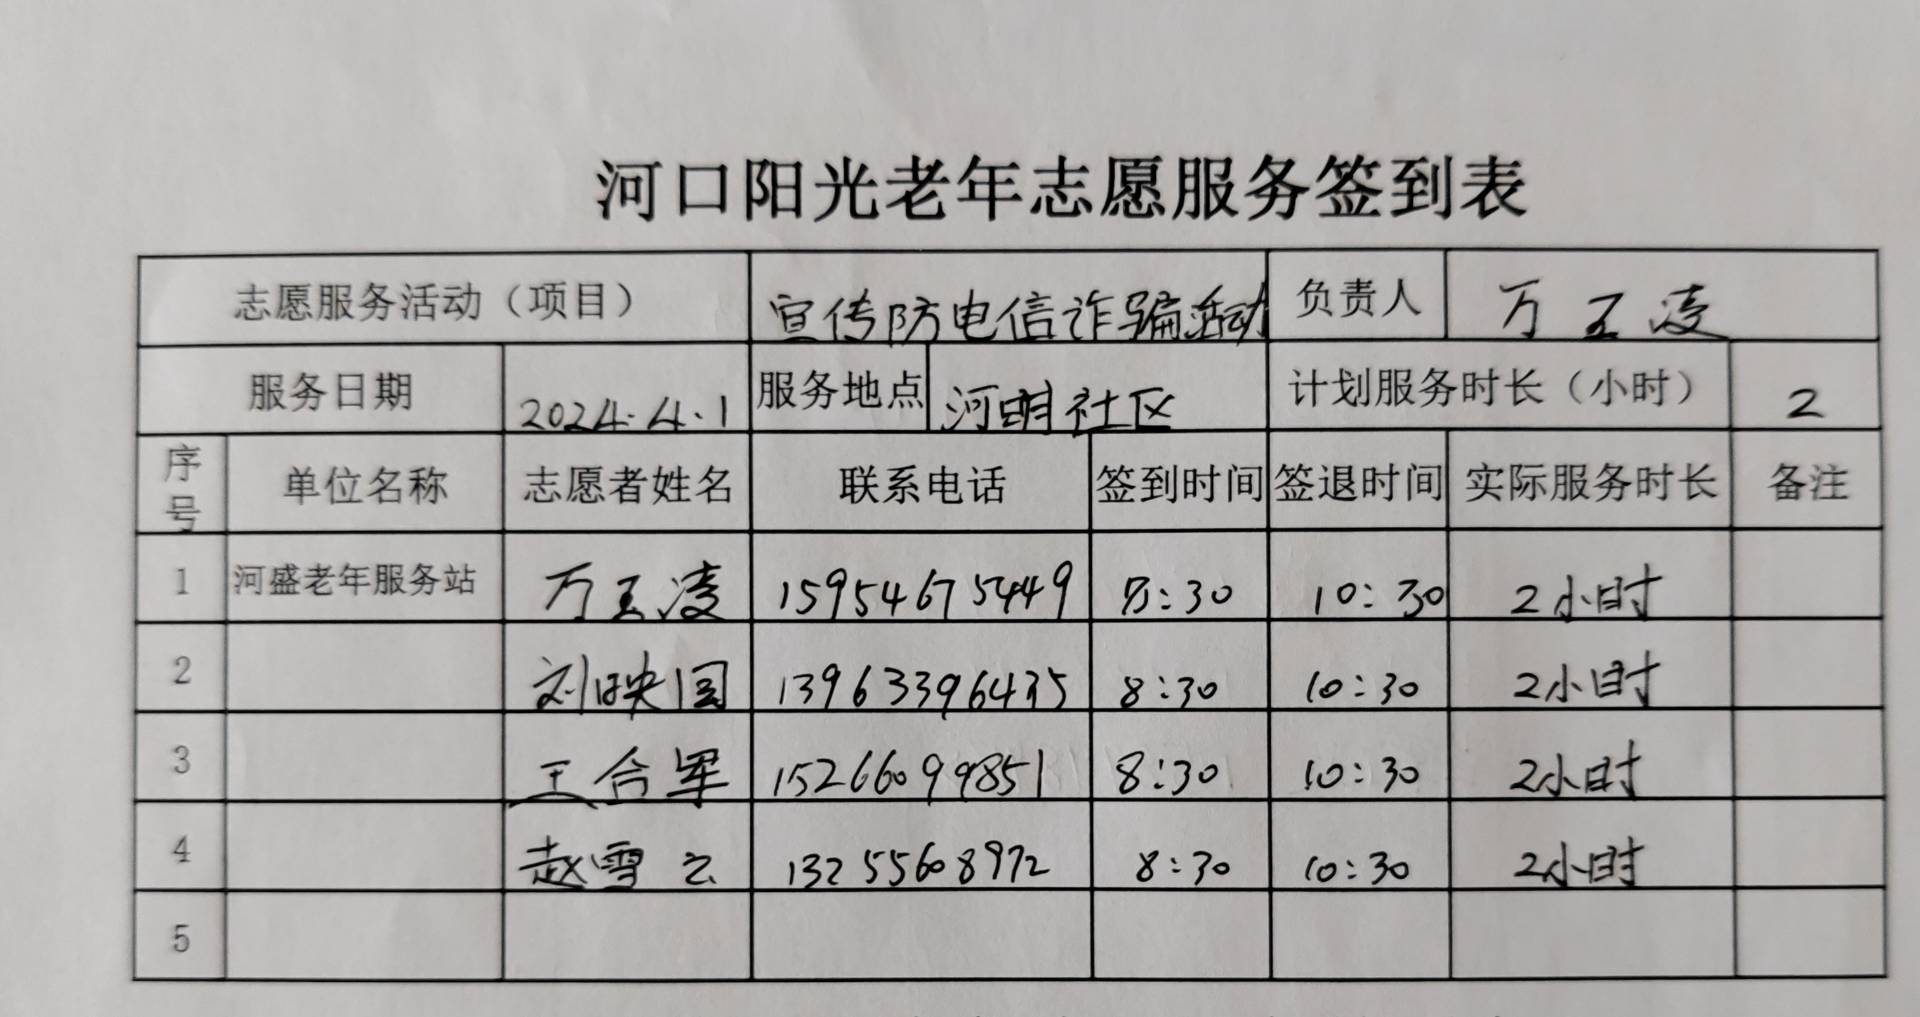 河口阳光老年志愿服务签到表
志愿服务活动（项目） 宣传防电信诈骗活动 负责人 万玉凌
服务日期 2024.4.1 服务地点 河明社区 计划服务时长（小时） 2
序号 单位名称 志愿者姓名 联系电话 签到时间 签退时间 实际服务时长 备注
1 河盛老年服务站 万玉凌 15954675449 8:30 10:30 2小时
2 刘映国 13963396435 8:30 10:30 2小时
3 王合军 15266099851 8:30 10:30 2小时
4 赵雪云 13255608972 8:30 10:30 2小时
5